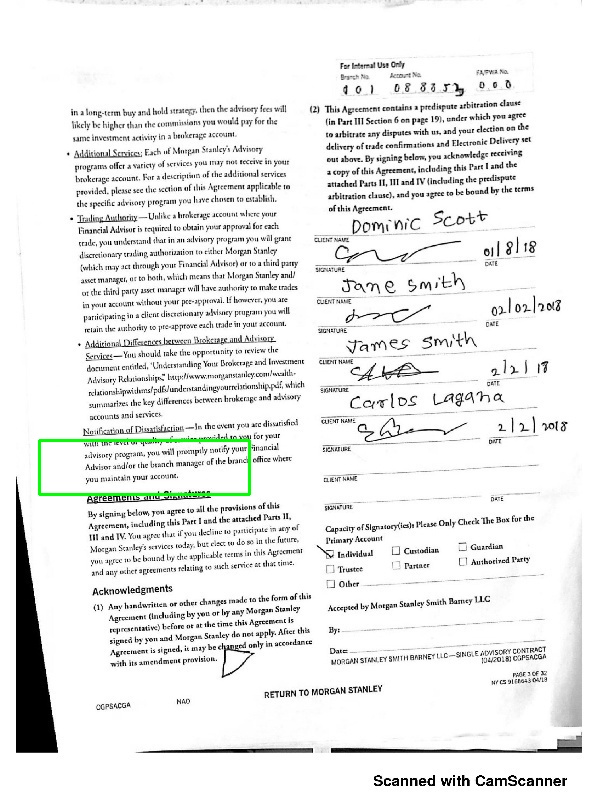 For Internal Use Only
Branch No. Account No. FA/PWA No.
001 088852 000
in a long-term buy and hold strategy, then the advisory fees will
likely be higher than the commissions you would pay for the
same investment activity in a brokerage account.
• Additional Services: Each of Morgan Stanley's Advisory
programs offer a variety of services you may not receive in your
brokerage account. For a description of the additional services
provided, please see the section of this Agreement applicable to
the specific advisory program you have chosen to establish.
• Trading Authority—Unlike a brokerage account where your
Financial Advisor is required to obtain your approval for each
trade, you understand that in an advisory program you will grant
discretionary trading authorization to either Morgan Stanley
(which may act through your Financial Advisor) or to a third party
asset manager, or to both, which means that Morgan Stanley and/
or the third party asset manager will have authority to make trades
in your account without your pre-approval. If however, you are
participating in a client discretionary advisory program you will
retain the authority to pre-approve each trade in your account.
• Additional Differences between Brokerage and Advisory
Services—You should take the opportunity to review the
document entitled, "Understanding Your Brokerage and Investment
Advisory Relationships," http://www.morganstanley.com/wealth-
relationshipwithms/pdfs/understandingyourrelationship.pdf, which
summarizes the key differences between brokerage and advisory
accounts and services.
Notification of Dissatisfaction—In the event you are dissatisfied
with the level or quality of service provided to you for your
advisory program, you will promptly notify your Financial
Advisor and/or the branch manager of the branch office where
you maintain your account.
Agreements and Signatures
By signing below, you agree to all the provisions of this
Agreement, including this Part I and the attached Parts II,
III and IV. You agree that if you decline to participate in any of
Morgan Stanley's services today, but elect to do so in the future,
you agree to be bound by the applicable terms in this Agreement
and any other agreements relating to such service at that time.
Acknowledgments
(1) Any handwritten or other changes made to the form of this
Agreement (including by you or by any Morgan Stanley
representative) before or at the time this Agreement is
signed by you and Morgan Stanley do not apply. After this
Agreement is signed, it may be changed only in accordance
with its amendment provision.
(2) This Agreement contains a predispute arbitration clause
(in Part III Section 6 on page 19), under which you agree
to arbitrate any disputes with us, and your election on the
delivery of trade confirmations and Electronic Delivery set
out above. By signing below, you acknowledge receiving
a copy of this Agreement, including this Part I and the
attached Parts II, III and IV (including the predispute
arbitration clause), and you agree to be bound by the terms
of this Agreement.
Dominic Scott
CLIENT NAME
01/8/18
SIGNATURE DATE
Jane Smith
CLIENT NAME
02/02/2018
SIGNATURE DATE
James Smith
CLIENT NAME
2/2/18
SIGNATURE DATE
Carlos Lagana
CLIENT NAME
2/2/2018
SIGNATURE DATE
CLIENT NAME
SIGNATURE DATE
Capacity of Signatory(ies): Please Only Check The Box for the
Primary Account
Individual Custodian Guardian
Trustee Partner Authorized Party
Other
Accepted by Morgan Stanley Smith Barney LLC
By:
Date:
MORGAN STANLEY SMITH BARNEY LLC—SINGLE ADVISORY CONTRACT
(04/2018) CGPSACGA
PAGE 3 OF 32
NY CS 9168643 04/18
CGPSACGA NAO RETURN TO MORGAN STANLEY
Scanned with CamScanner